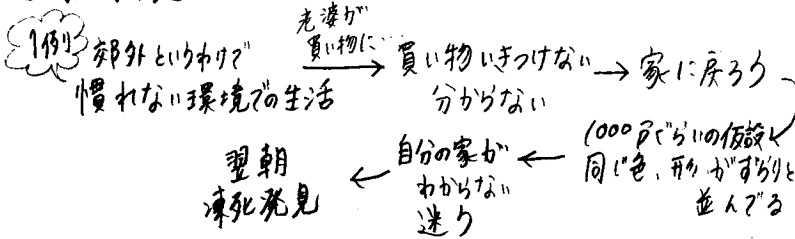 1例)
郊外というわけで
慣れない環境での生活
老婆が
買い物に…
買い物いきつけない
分からない
家に戻ろう
1000戸ぐらいの仮設
同じ色、形がずらりと
並んでる
自分の家が
わからない
迷う
翌朝
凍死発見